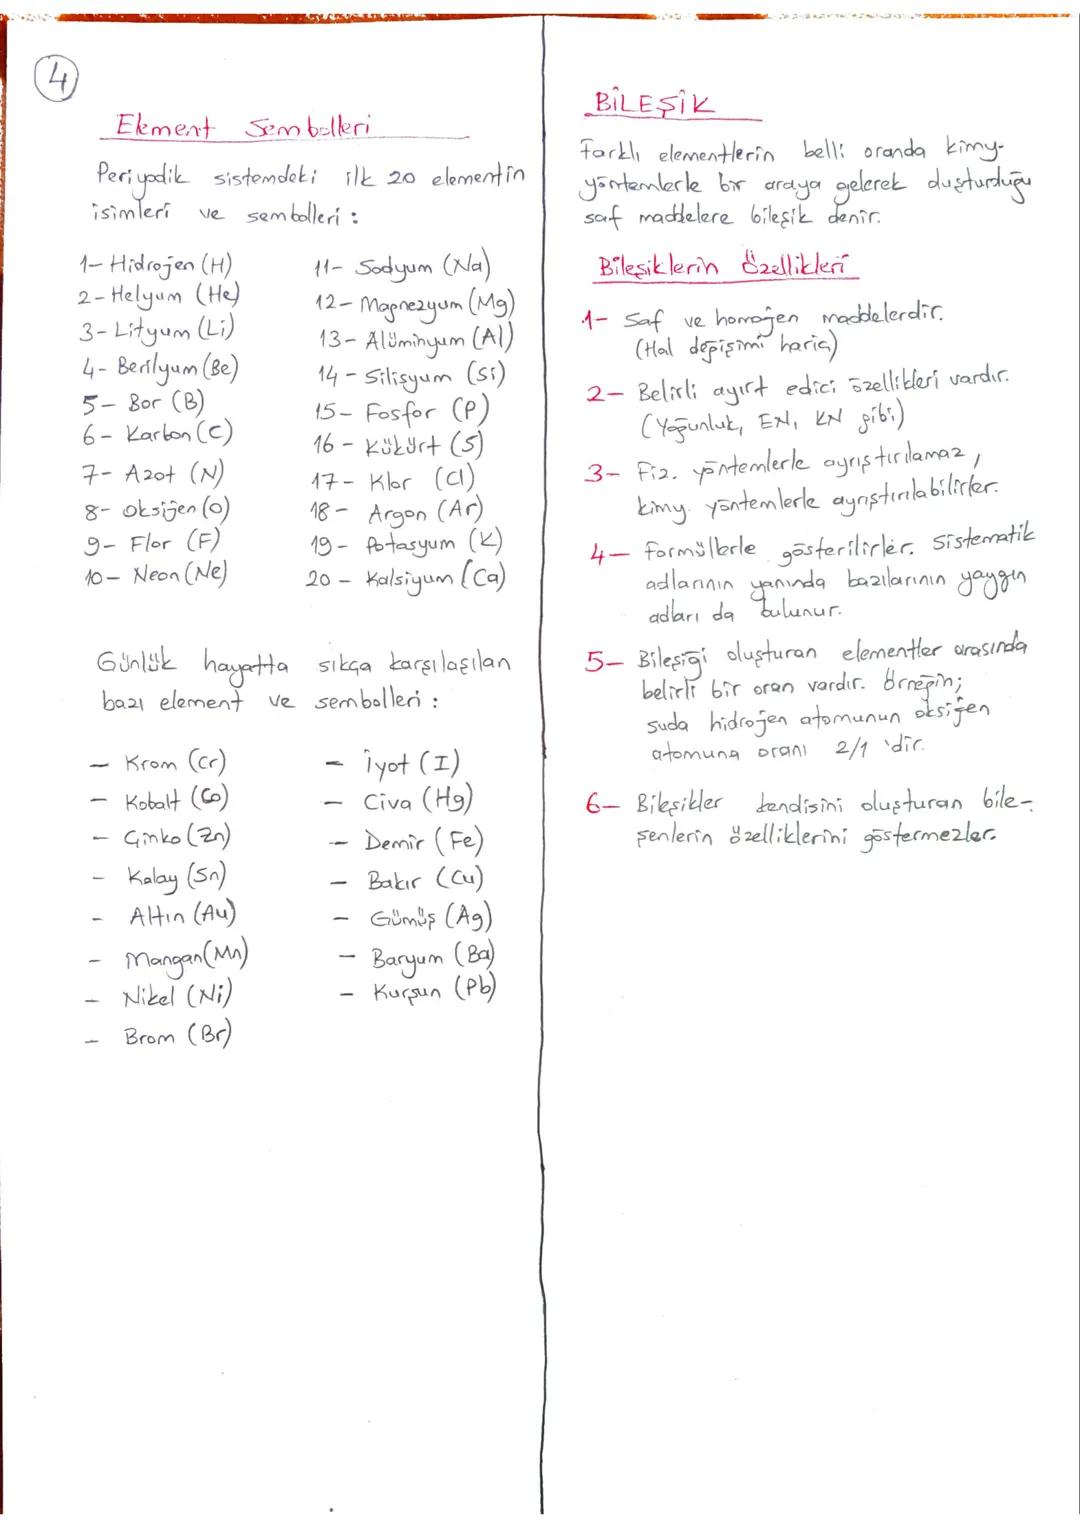 4
Element Sembolleri
Periyodik sistemdeki ilk 20 elementin
isimleri ve sembolleri :
1- Hidrojen (H)
2- Helyum (He)
3- Lityum (Li)
4- Berilyum (Be)
5- Bor (B)
6- Karbon (C)
7- Azot (N)
8- Oksijen (O)
9- Flor (F)
10- Neon (Ne)
11- Sodyum (Na)
12- Magnezyum (Mg)
13- Alüminyum (Al)
14- Silisyum (Si)
15- Fosfor (P)
16- Kükürt (S)
17- Klor (Cl)
18- Argon (Ar)
19- Potasyum (K)
20- Kalsiyum (Ca)
Günlük hayatta sıkça karşılaşılan
bazı element ve sembolleri :
- Krom (Cr)
- Kobalt (Co)
- Çinko (Zn)
- Kalay (Sn)
- Altın (Au)
- Mangan (Mn)
- Nikel (Ni)
- Brom (Br)
- İyot (I)
- Civa (Hg)
- Demir (Fe)
- Bakır (Cu)
- Gümüş (Ag)
- Baryum (Ba)
- Kurşun (Pb)
BİLEŞİK
Farklı elementlerin belli oranda kimy.
yöntemlerle bir araya gelerek oluşturduğu
saf maddelere bileşik denir.
Bileşiklerin Özellikleri
1- Saf ve homojen maddelerdir.
(Hal değişimi hariç)
2- Belirli ayırt edici özellikleri vardır.
(Yoğunluk, EN, KN gibi)
3- Fiz. yöntemlerle ayrıştırılamaz,
kimy. yöntemlerle ayrıştırılabilirler.
4- Formüllerle gösterilirler. Sistematik
adlarının yanında bazılarının yaygın
adları da bulunur.
5- Bileşiği oluşturan elementler arasında
belirli bir oran vardır. Örneğin;
suda hidrojen atomunun oksijen
atomuna oranı 2/1 'dir.
6- Bileşikler kendisini oluşturan bile-
şenlerin özelliklerini göstermezler.